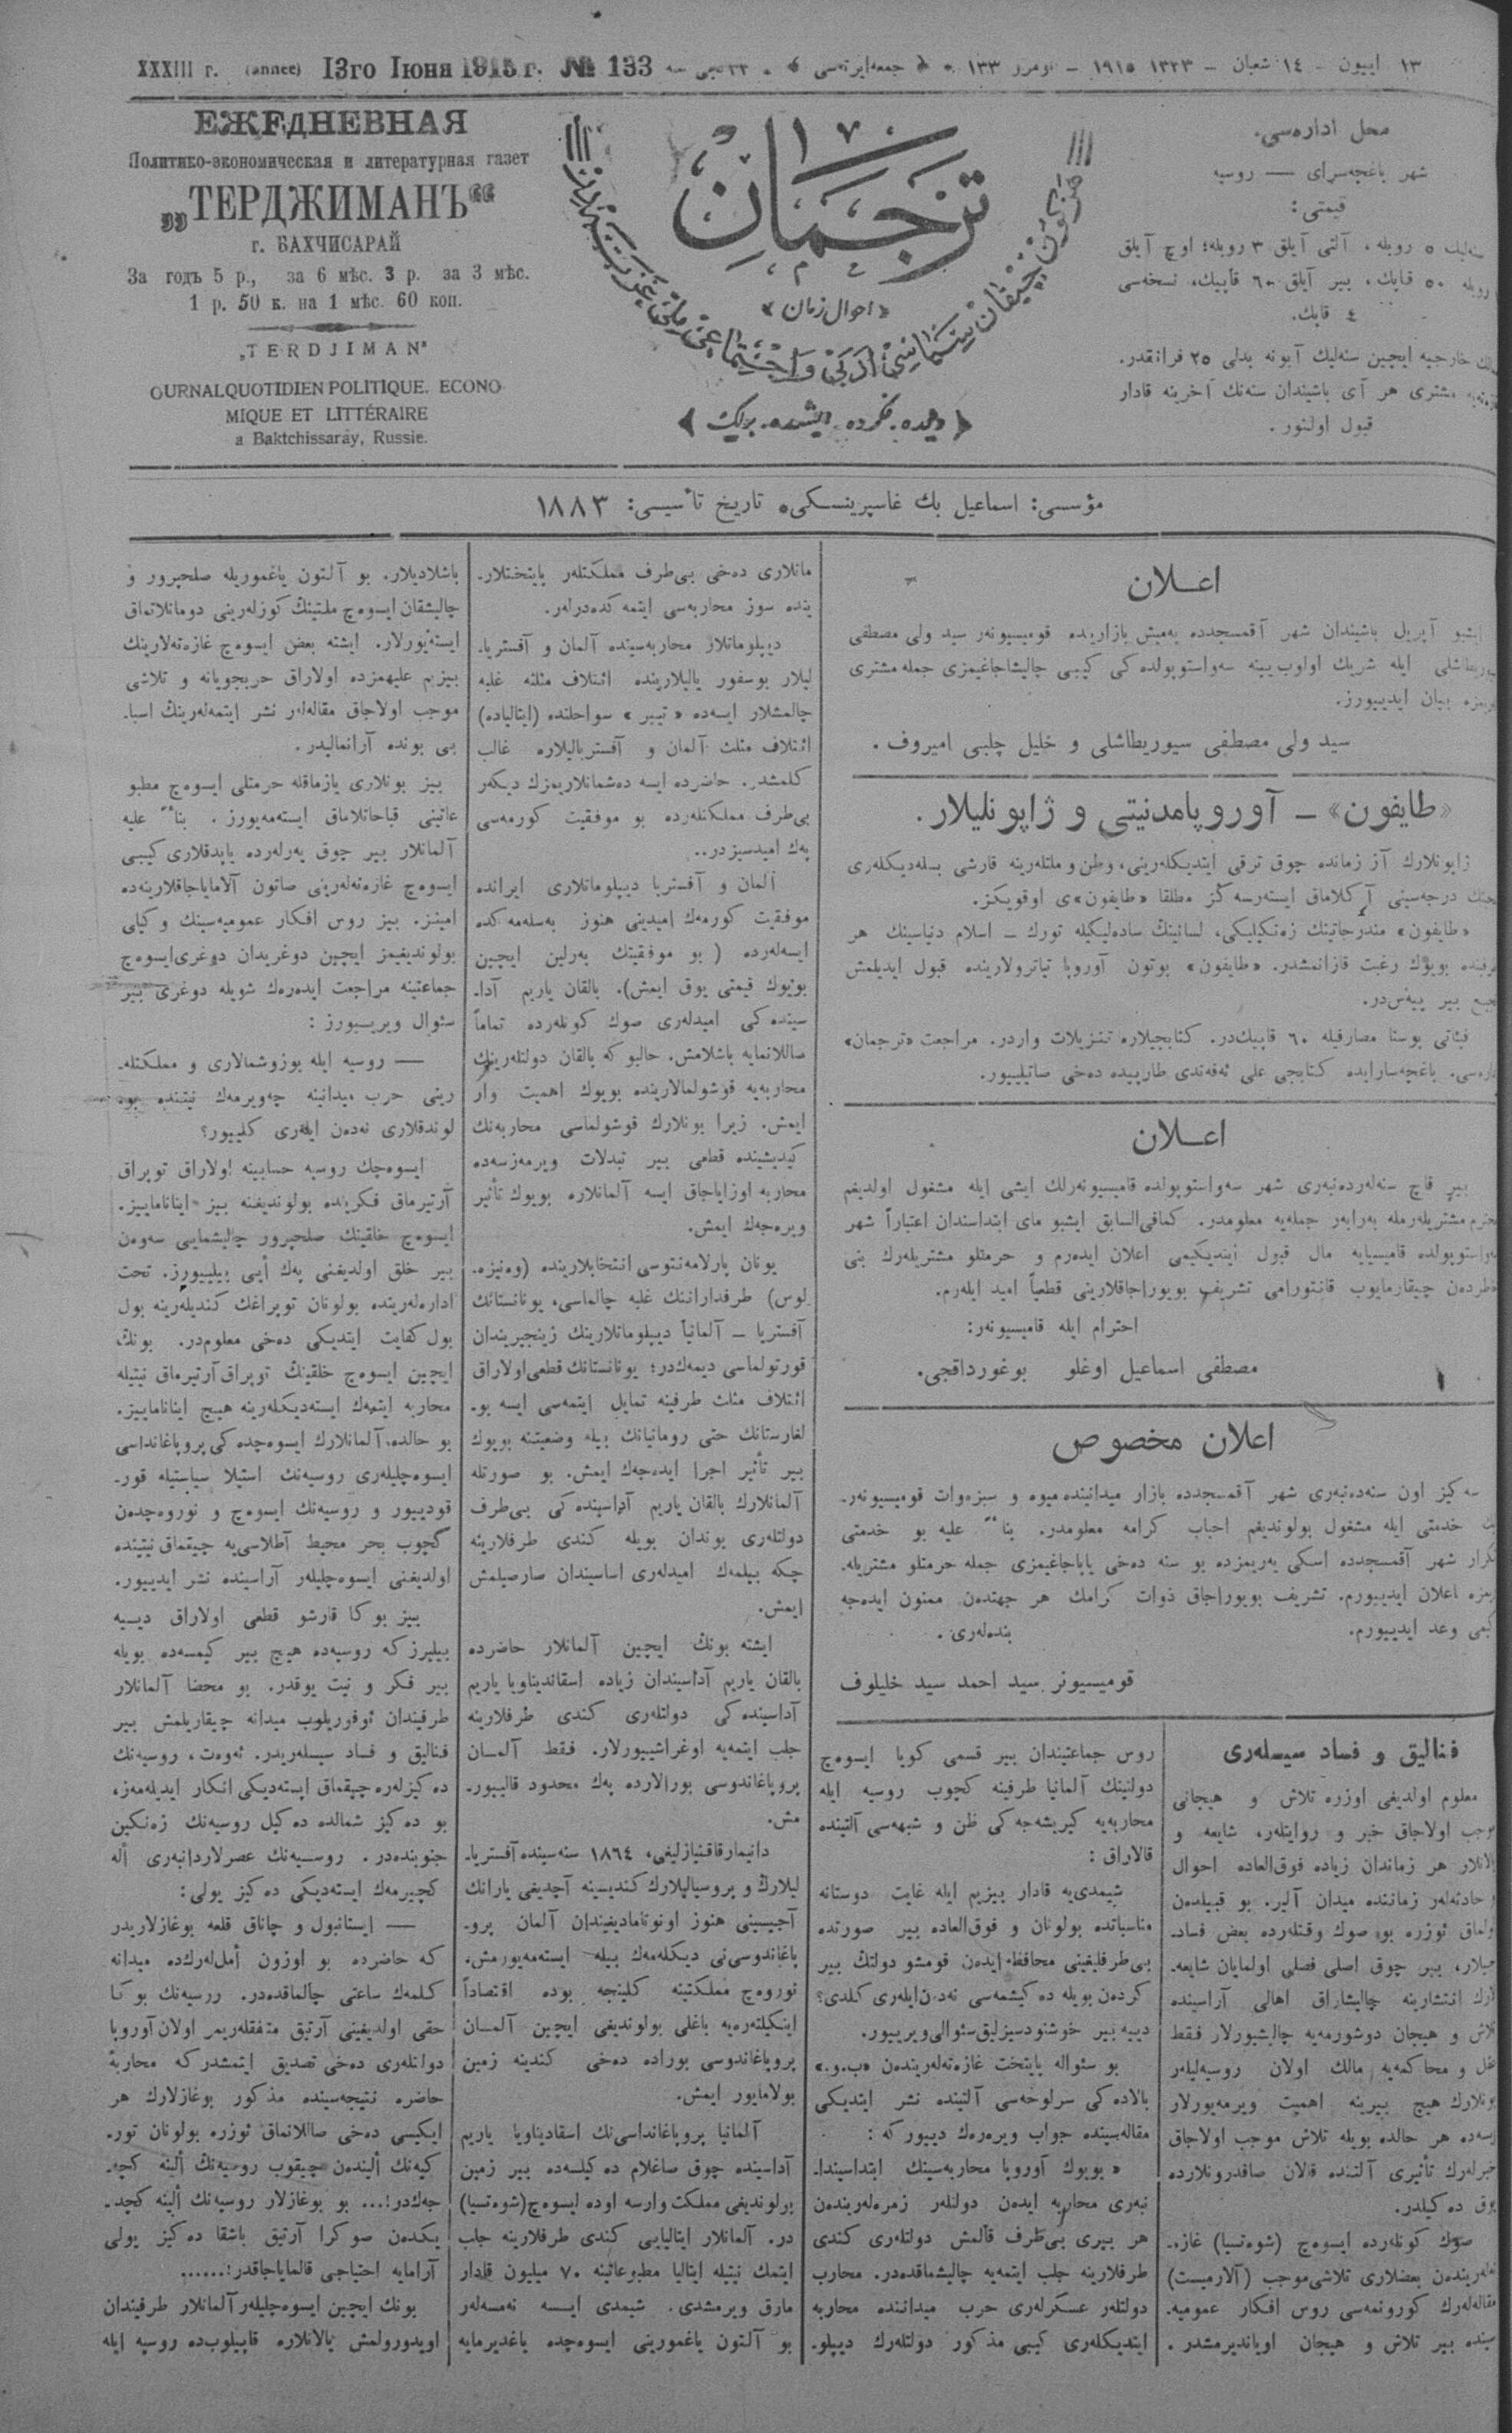 XXXIII г. (année) 13го Іюня 1915 г. № 133
١٣ ایییون – ١٤ شعبان – ١٣٣٣ – ١٩١٥ – نومرو ١٣٣
ЕЖЕДНЕВНАЯ
Политико-экономическая и литературная газет
„ТЕРДЖИМАНЪ“
г. БАХЧИСАРАЙ
За годъ 5 р., за 6 мѣс. 3 р. за 3 мѣс.
1 р. 50 к. на 1 мѣс. 60 коп.
„TERDJIMAN“
OURNAL QUOTIDIEN POLITIQUE. ECONO
MIQUE ET LITTÉRAIRE
a Baktchissaray, Russie.
ترجمان
«احوال زمان»
﴿دیلده، فكرده، ایشده، برلك﴾
محل اداره‌سی.
شهر باغچه‌سرای — روسیه
قیمتی:
سنه‌لیك ٥ روبله، آلتی آیلق ٣ روبله؛ اوچ آیلق
روبله ٥٠ قاپك، بیر آیلق ٦٠ قاپیك، نسخه‌سی
٤ قاپك.
خارجیه ایچین سنه‌لیك آبونه بدلی ٢٥ فرانقدر.
مشتری هر آی باشیندان سنه‌نك آخرینه قادار
قبول اولنور.
مؤسسی: اسماعیل بك غاسپرینسكی، تاریخ تأسیسی: ١٨٨٣
اعلان
ایشبو آپریل باشیندان شهر آقمسجدده یه‌میش بازارینده قومیسیونه‌ر سید ولی مصطفی
ایله شریك اولوب یینه سه‌واستوپولده كی كیبی چالیشاجاغیمزی جمله مشتری
بیان ایدییورز.
سید ولی مصطفی سیوریطاشلی و خلیل چلبی امیروف.
«طایفون» – آوروپا مدنیتی و ژاپونلیلار.
ژاپونلارك آز زمانده چوق ترقی ایتدیكله‌رینی، وطن و ملتله‌رینه قارشی بسله‌دیكله‌ری
درجه‌سینی آكلاماق ایسته‌رسه‌كز مطلقا «طایفون»ی اوقویكز.
«طایفون» مندرجاتینك زه‌نكیلیكی، لسانینك ساده‌لیكیله تورك – اسلام دنیاسینك هر
بویوك رغبت قازانمشدر. «طایفون» بوتون آوروپا تیاترولارینده قبول ایدیلمش
بیر پییه‌س‌در.
فیئاتی پوستا مصارفیله ٦٠ قاپیك‌در. كتابجیلاره تنزیلات واردر. مراجعت «ترجمان»
باغچه‌سارایده كتابجی علی ئه‌فه‌ندی طارپیده دخی صاتیلییور.
اعلان
بیر قاچ سنه‌له‌رده‌نبه‌ری شهر سه‌واستوپولده قامیسیونه‌رلك ایشی ایله مشغول اولدیغم
مشتریله‌رمله به‌رابه‌ر جمله‌یه معلومدر. كمافی‌السابق ایشبو مای ابتداسندان اعتباراً شهر
قامیسیایه مال قبول ایتدیكیمی اعلان ایده‌رم و حرمتلو مشتریله‌رك بنی
چیقارمایوب قانتورامی تشریف بویوراجاقلارینی قطعیاً امید ایله‌رم.
احترام ایله قامیسیونه‌ر:
مصطفی اسماعیل اوغلو بوغورداقجی.
اعلان مخصوص
سه‌كیز اون سنه‌ده‌نبه‌ری شهر آقمسجدده بازار میداننده میوه و سبزه‌وات قومیسیونه‌ر-
خدمتی ایله مشغول بولوندیغم احباب كرامه معلومدر. بناءً علیه بو خدمتی
شهر آقمسجدده اسكی یه‌ریمزده بو سنه دخی یاپاجاغیمزی جمله حرمتلو مشتریله-
اعلان ایدییورم. تشریف بویوراجاق ذوات كرامك هر جهتدن ممنون ایده‌جه
وعد ایدییورم. بنده‌له‌ری.
قومیسیونر سید احمد سید خلیلوف
فنالیق و فساد سیسله‌ری
معلوم اولدیغی اوزره تلاش و هیجانی
موجب اولاجاق خبر و روایتله‌ر، شایعه و
یالانلار هر زماندان زیاده فوق‌العاده احوال
و حادثه‌له‌ر زماننده میدان آلیر. بو قبیلدن
اولماق ئوزره بو صوك وقتله‌رده بعض فساد-
جیلار، بیر چوق اصلی فصلی اولمایان شایعه-
لارك انتشارینه چالیشاراق اهالی آراسینده
تلاش و هیجان دوشورمه‌یه چالیشیورلار فقط
عقل و محاكمه‌یه مالك اولان روسیه‌لیله‌ر
بونلارك هیچ بیرینه اهمیت ویرمه‌یورلار
ایسه‌ده هر حالده بویله تلاش موجب اولاجاق
خبرله‌رك تأثیری آلتنده قالان صافدرونلارده
یوق ده‌كیلدر.
صوك كونله‌رده ایسوه‌چ (شوه‌تسیا) غازه-
ته‌له‌ریندن بعضلاری تلاشی موجب (آلارمیست)
مقاله‌له‌رك كورونمه‌سی روس افكار عمومیه-
سینده بیر تلاش و هیجان اویاندیرمشدر.
روس جماعتیندان بیر قسمی كویا ایسوه‌چ
دولتینك آلمانیا طرفینه كچوب روسیه ایله
محاربه‌یه كیریشه‌جه‌كی ظن و شبهه‌سی آلتینده
قالاراق:
شیمدی‌یه قادار بیزیم ایله غایت دوستانه
مناسباتده بولونان و فوق‌العاده بیر صورتده
بی‌طرفلیغینی محافظه ایده‌ن قومشو دولتك بیر
كرده‌ن بویله ده‌كیشمه‌سی نه‌دن ایله‌ری كلدی؟
دییه بیر خوشنودسیزلیق سئوالی ویرییور.
بو سئواله پایتخت غازه‌ته‌له‌ریندن «ب.و.»
بالاده‌كی سرلوحه‌سی آلتینده نشر ایتدیكی
مقاله‌سینده جواب ویره‌رك دییور كه:
«بویوك آوروپا محاربه‌سینك ابتداسیندا-
نبه‌ری محاربه ایدن دولتله‌ر زمره‌له‌ریندن
هر بیری بی‌طرف قالمش دولتله‌ری كندی
طرفلارینه جلب ایتمه‌یه چالیشماقده‌در. محارب
دولتله‌ر عسكرله‌ری حرب میداننده محاربه
ایتدیكله‌ری كیبی مذكور دولتله‌رك دیپلو-
ماتلاری دخی بی‌طرف مملكتله‌ر پایتختلار-
ینده سوز محاربه‌سی ایتمه‌كده‌درله‌ر.
دیپلوماتلار محاربه‌سینده آلمان و آفستریا-
لیلار بوسفور یالیلارینده ائتلاف مثلثه غلبه
چالمشلار ایسه‌ده «تیبر» سواحلنده (ایتالیاده)
ائتلاف مثلث آلمان و آفستریالیلاره غالب
كلمشدر. حاضرده ایسه ده‌شمانلاریمزك دیكه‌ر
بی‌طرف مملكتله‌رده بو موفقیت كورمه‌سی
په‌ك امیدسیزدر..
آلمان و آفستریا دیپلوماتلاری ایرانده
موفقیت كورمه‌ك امیدینی هنوز به‌سله‌مه‌كده
ایسه‌له‌رده (بو موفقیتك به‌رلین ایچین
بویوك قیمتی یوق ایمش). بالقان یاریم آدا-
سینده‌كی امیدله‌ری صوك كونله‌رده تماماً
صاللانمایه باشلامش. حالبوكه بالقان دولتله‌رینك
محاربه‌یه قوشولمالارینده بویوك اهمیت وار
ایمش. زیرا بونلارك قوشولماسی محاربه‌نك
كیدیشینده قطعی بیر تبدلات ویرمه‌زسه‌ده
محاربه اوزایاجاق ایسه آلمانلاره بویوك تأثیر
ویره‌جه‌ك ایمش.
یونان پارلامه‌نتوسی انتخابلارینده (وه‌نیزه-
لوس) طرفدارانینك غلبه چالماسی، یونانستانك
آفستریا – آلمانیا دیپلوماتلارینك زینجیریندان
قورتولماسی دیمه‌ك‌در؛ یونانستانك قطعی اولاراق
ائتلاف مثلث طرفینه تمایل ایتمه‌سی ایسه بو-
لغارستانك حتی رومانیانك بیله وضعیتنه بویوك
بیر تأثیر اجرا ایده‌جه‌ك ایمش. بو صورتله
آلمانلارك بالقان یاریم آداسینده‌كی بی‌طرف
دولتله‌ری بوندان بویله كندی طرفلارینه
چكه بیلمه‌ك امیدله‌ری اساسیندان صارصیلمش
ایمش.
ایشته بونك ایچین آلمانلار حاضرده
بالقان یاریم آداسیندان زیاده اسقاندیناویا یاریم
آداسینده‌كی دولتله‌ری كندی طرفلارینه
جلب ایتمه‌یه اوغراشییورلار. فقط آلمان
پروپاغاندوسی بورالارده په‌ك محدود قالییور-
مش.
دانیمارقا قنیازلیغی، ١٨٦٤ سنه‌سینده آفستریا-
لیلارك و پروسیالیلارك كندیسینه آچدیغی یارانك
آجیسینی هنوز اونوتامادیغیندان آلمان پرو-
پاغاندوسی‌نی دیكله‌مه‌ك بیله ایسته‌مه‌یورمش.
نوروه‌چ مملكتینه كلینجه بوده اقتصاداً
اینكیلته‌ره‌یه باغلی بولوندیغی ایچین آلمان
پروپاغاندوسی بوراده دخی كندینه زمین
بولامایور ایمش.
آلمانیا پروپاغانداسی‌نك اسقادیناویا یاریم
آداسینده چوق صاغلام ده‌كیلسه‌ده بیر زمین
بولوندیغی مملكت وارسه اوده ایسوه‌چ (شوه‌تسیا)
در. آلمانلار ایتالیایی كندی طرفلارینه جلب
ایتمك نیتیله ایتالیا مطبوعاتینه ٧٠ میلیون قادار
مارق ویرمشدی. شیمدی ایسه نه‌مسه‌له‌ر
بو آلتون یاغمورینی ایسوه‌چده یاغدیرمایه
باشلادیلار. بو آلتون یاغموریله صلحپرور و
چالیشقان ایسوه‌چ ملتینك كوزله‌رینی دومانلاتماق
ایسته‌یورلار. ایشته بعض ایسوه‌چ غازه‌ته‌لارینك
بیزیم علیهمزده اولاراق حربجویانه و تلاشی
موجب اولاجاق مقاله‌له‌ر نشر ایتمه‌له‌رینك اسبا-
بی بونده آرانمالیدر.
بیز بونلاری یازماقله حرمتلی ایسوه‌چ مطبو
عاتینی قباحاتلاماق ایسته‌مه‌یورز. بناءً علیه
آلمانلار بیر چوق یه‌رله‌رده یاپدقلاری كیبی
ایسوه‌چ غازه‌ته‌له‌رینی صاتون آلامایاجاقلارینه‌ده
امینز. بیز روس افكار عمومیه‌سینك وكیلی
بولوندیغیمز ایچین دوغریدان دوغری ایسوه‌چ
جماعتینه مراجعت ایده‌ره‌ك شویله دوغری بیر
سئوال ویرییورز:
— روسیه ایله بوزوشمالاری و مملكتله-
رینی حرب میدانینه چه‌ویرمه‌ك نیتنده بو-
لوندقلاری نه‌ده‌ن ایله‌ری كلییور؟
ایسوه‌چك روسیه حسابینه اولاراق توپراق
آرتیرماق فكرینده بولوندیغنه بیز اینانامایز.
ایسوه‌چ خلقینك صلحپرور چالیشمایی سه‌وه‌ن
بیر خلق اولدیغنی په‌ك أیی بیلییورز. تحت
اداره‌له‌رینده بولونان توپراغك كندیله‌رینه بول
بول كفایت ایتدیكی دخی معلوم‌در. بونك
ایچین ایسوه‌چ خلقینك توپراق آرتیرماق نیتیله
محاربه ایتمه‌ك ایسته‌دیكله‌رینه هیچ اینانامایز.
بو حالده، آلمانلارك ایسوه‌چده‌كی پروپاغانداسی
ایسوه‌چلیله‌ری روسیه‌نك استیلا سیاستیله قور-
قودییور و روسیه‌نك ایسوه‌چ و نوروه‌چدن
گچوب بحر محیط آطلاسی‌یه چیقماق نیتینده
اولدیغنی ایسوه‌چلیله‌ر آراسینده نشر ایدییور.
بیز بوكا قارشو قطعی اولاراق دییه
بیلیرز كه روسیه‌ده هیچ بیر كیمسه‌ده بویله
بیر فكر و نیت یوقدر. بو محضا آلمانلار
طرفیندان ئوفوریلوب میدانه چیقاریلمش بیر
فنالیق و فساد سیسله‌ریدر. ئه‌وه‌ت، روسیه‌نك
ده‌كیزله‌ره چیقماق ایسته‌دیكی انكار ایدیله‌مه‌ز،
بو ده‌كیز شمالده ده‌كیل روسیه‌نك زه‌نكین
جنوبنده‌در. روسیه‌نك عصرلاردانبه‌ری أله
كچیرمه‌ك ایسته‌دیكی ده‌كیز یولی:
— إیستانبول و چاناق قلعه بوغازلاریدر
كه حاضرده بو اوزون أمل‌له‌رك‌ده میدانه
كلمه‌ك ساعتی چالماقده‌در. روسیه‌نك بوكا
حقی اولدیغینی آرتیق متفقله‌ریمز اولان آوروپا
دولتله‌ری دخی تصدیق ایتمشدر كه محاربۀ
حاضره نتیجه‌سینده مذكور بوغازلارك هر
ایكیسی دخی صاللانماق ئوزره بولونان تور-
كیه‌نك ألیندن چیقوب روسیه‌نك ألینه كچه-
جه‌كدر!... بو بوغازلار روسیه‌نك ألینه كچد-
یكدن صوكرا آرتیق باشقا ده‌كیز یولی
آرامایه احتیاجی قالمایاجاقدر!......
بونك ایچین ایسوه‌چلیله‌ر آلمانلار طرفیندان
اویدورولمش یالانلاره قاپیلوب‌ده روسیه ایله